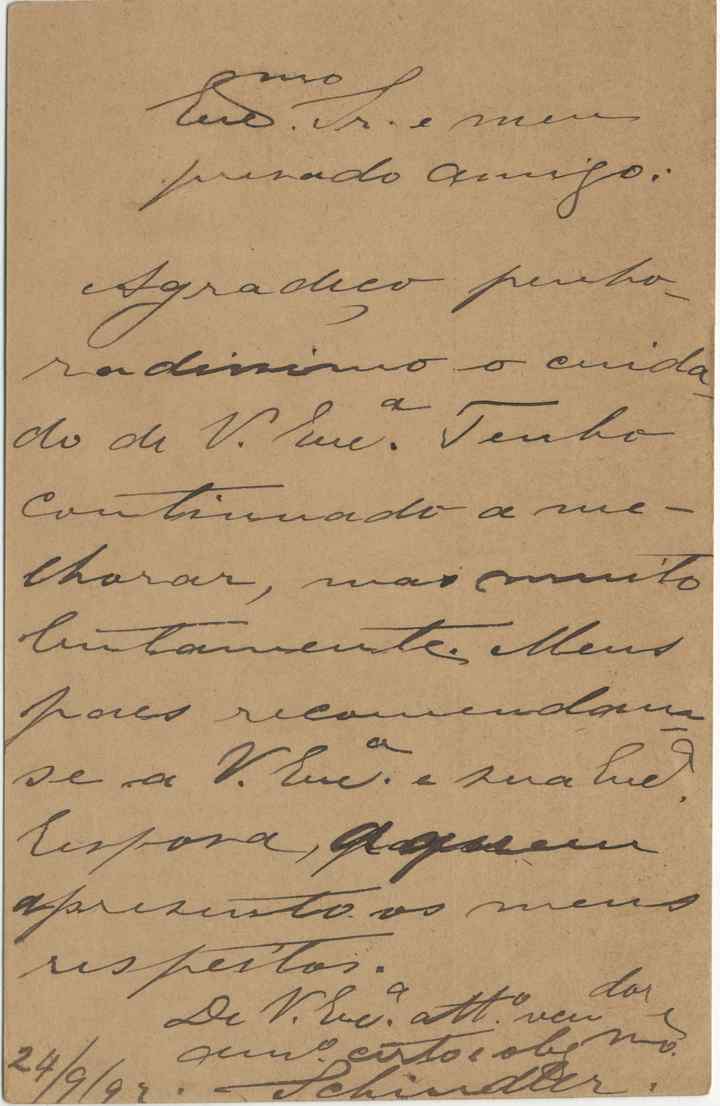 Exmo. Sr. e meu
presado amigo:
Agradeço penho-
radissimo o cuida-
do de V. Exc.a Tenho
continuado a me-
lhorar, mas muito
lentamente. Meus
paes recomendam-
se a V. Exc.a e sua Exc.a
Esposa, a quem
apresento os meus
respeitos.
De V. Exc.a att.o ven.dor
am.o certo e obg.mo
24/9/97. Schindler.